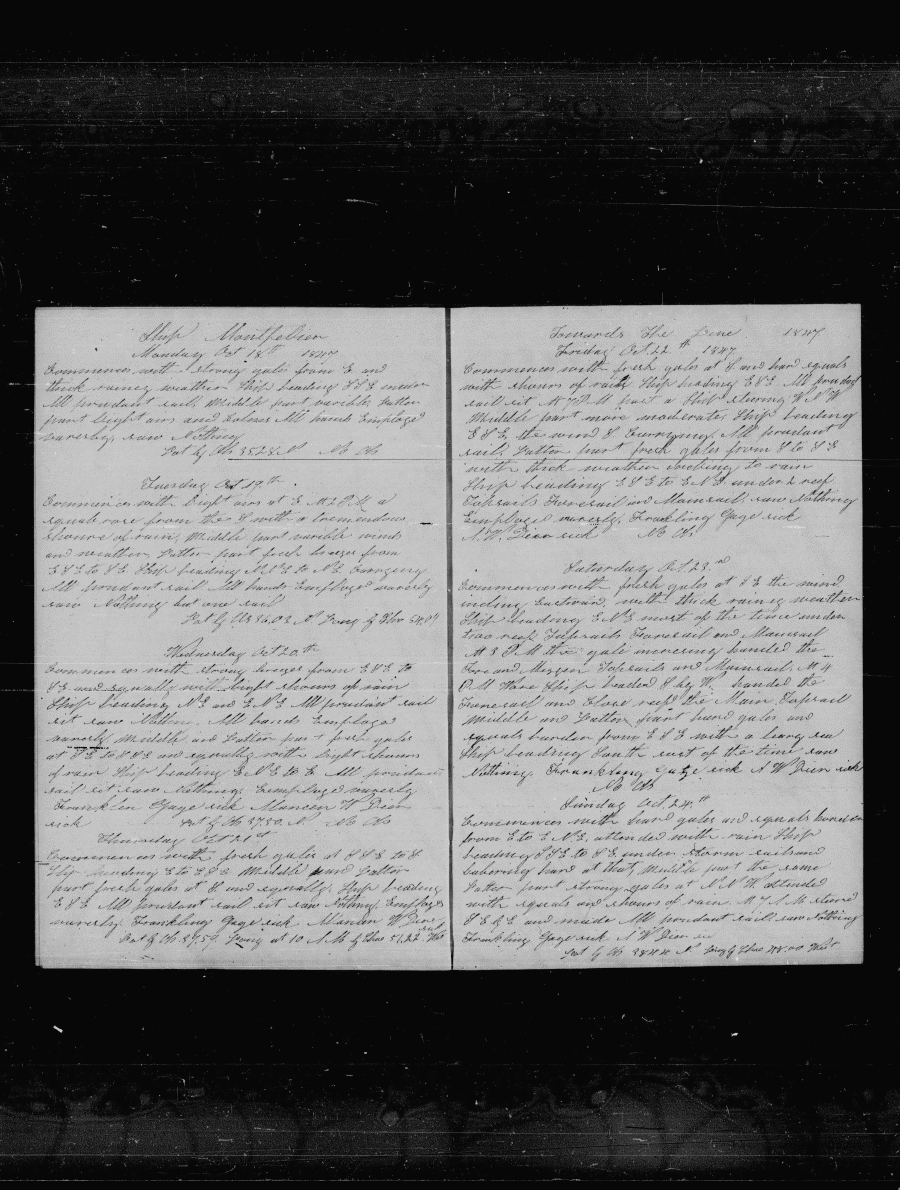 Ship Montpelier
Monday Oct 18th 1847
Commences with strong gales from E and
thick rainey weather Ship heading S S E under
All prudant sail, Middle part varible, Latter
part light airs and Calms All hands Employed
waverley saw Nothing
Lat by Ob 35.28 N No Ob
Tuesday Oct 19th
Commences with light airs at E. At 2 P.M. a
squal rose from the S with a tremendous
shower of rain, Middle part varible winds
and weather, Latter part fresh breezes from
E S E to S E Ship heading N N E to N E Carrying
All prudant sail All hands Employed waverly
saw Nothing but one sail
Lat by Ob 36.03 N Long by Chro 54,04
Wednesday Oct 20th
Commences with strong breezes from E S E to
S E and squally with light showers of rain
Ship heading N E and E N E All prudant sail
set saw Nothing. All hands Employed
waverly Middle and Latter part fresh gales
at S E to S S E and squally with light showers
of rain Ship heading E N E to E All prudant
sail set saw Nothing. Employed waverly
Franklin Gage sick W Dien
sick Lat by Ob 37.50 N No Ob
Thursday Oct 21st
Commences with fresh gales at S S E to S
Ship heading E to E S E Middle and Latter
part fresh gales at S and squally. Ship heading
E S E All prudant sail set saw Nothing Employed
waverly Frankling Gage sick W Dien
sick
Lat by Ob 37,59 Long at 10 A.M. by Chro 51,22 West
Towards The Line 1847
Friday Oct 22th 1847
Commences with fresh gales at S and hard squals
with showers of rain, Ship heading E S E All prudant
sail set At M part a Ship stering W N W
Middle part more moderate, Ship heading
E S E, the wind S Carrying All prudant
sail, Latter part fresh gales from S to S E
with thick weather looking to rain
Ship heading E S E to E N E under 2 reef
Topsails Foresail and Mainsail, saw Nothing
Employed waverly, Frankling Gage sick
A. W. Dien sick No Ob
Saturday Oct 23rd
Commences with fresh gales at S E the wind
incling Eastward, with thick rainey weather
Ship heading E N E most of the time under
Two reep Topsails Foresail and Mainsail
At 3 P.M the gale increasing handed the
Fore and Mizzen Topsails and Mainsail. At 4
P.M Wore Ship headed S by W, handed the
Foresail and Close reep the Main Topsail
Middle and Latter part hard gales and
squals harder from E S E with a heavy sea
Ship heading South most of the time saw
Nothing, Frankling Gage sick A W Dien sick
No Ob
Sunday Oct 24th
Commences with hard gales and squals
from E to E N E, attended with rain Ship
heading S S E to S E under storm sails and
hard at that, Middle part the same
Latter part strong gales at N N W attended
with squals and showers of rain. At 7 A.M. steered
S E & E and made All prudant sail, saw Nothing
Frankling Gage sick A W Dien
Lat by Ob 38 44 N Long by Chro 48.00 West